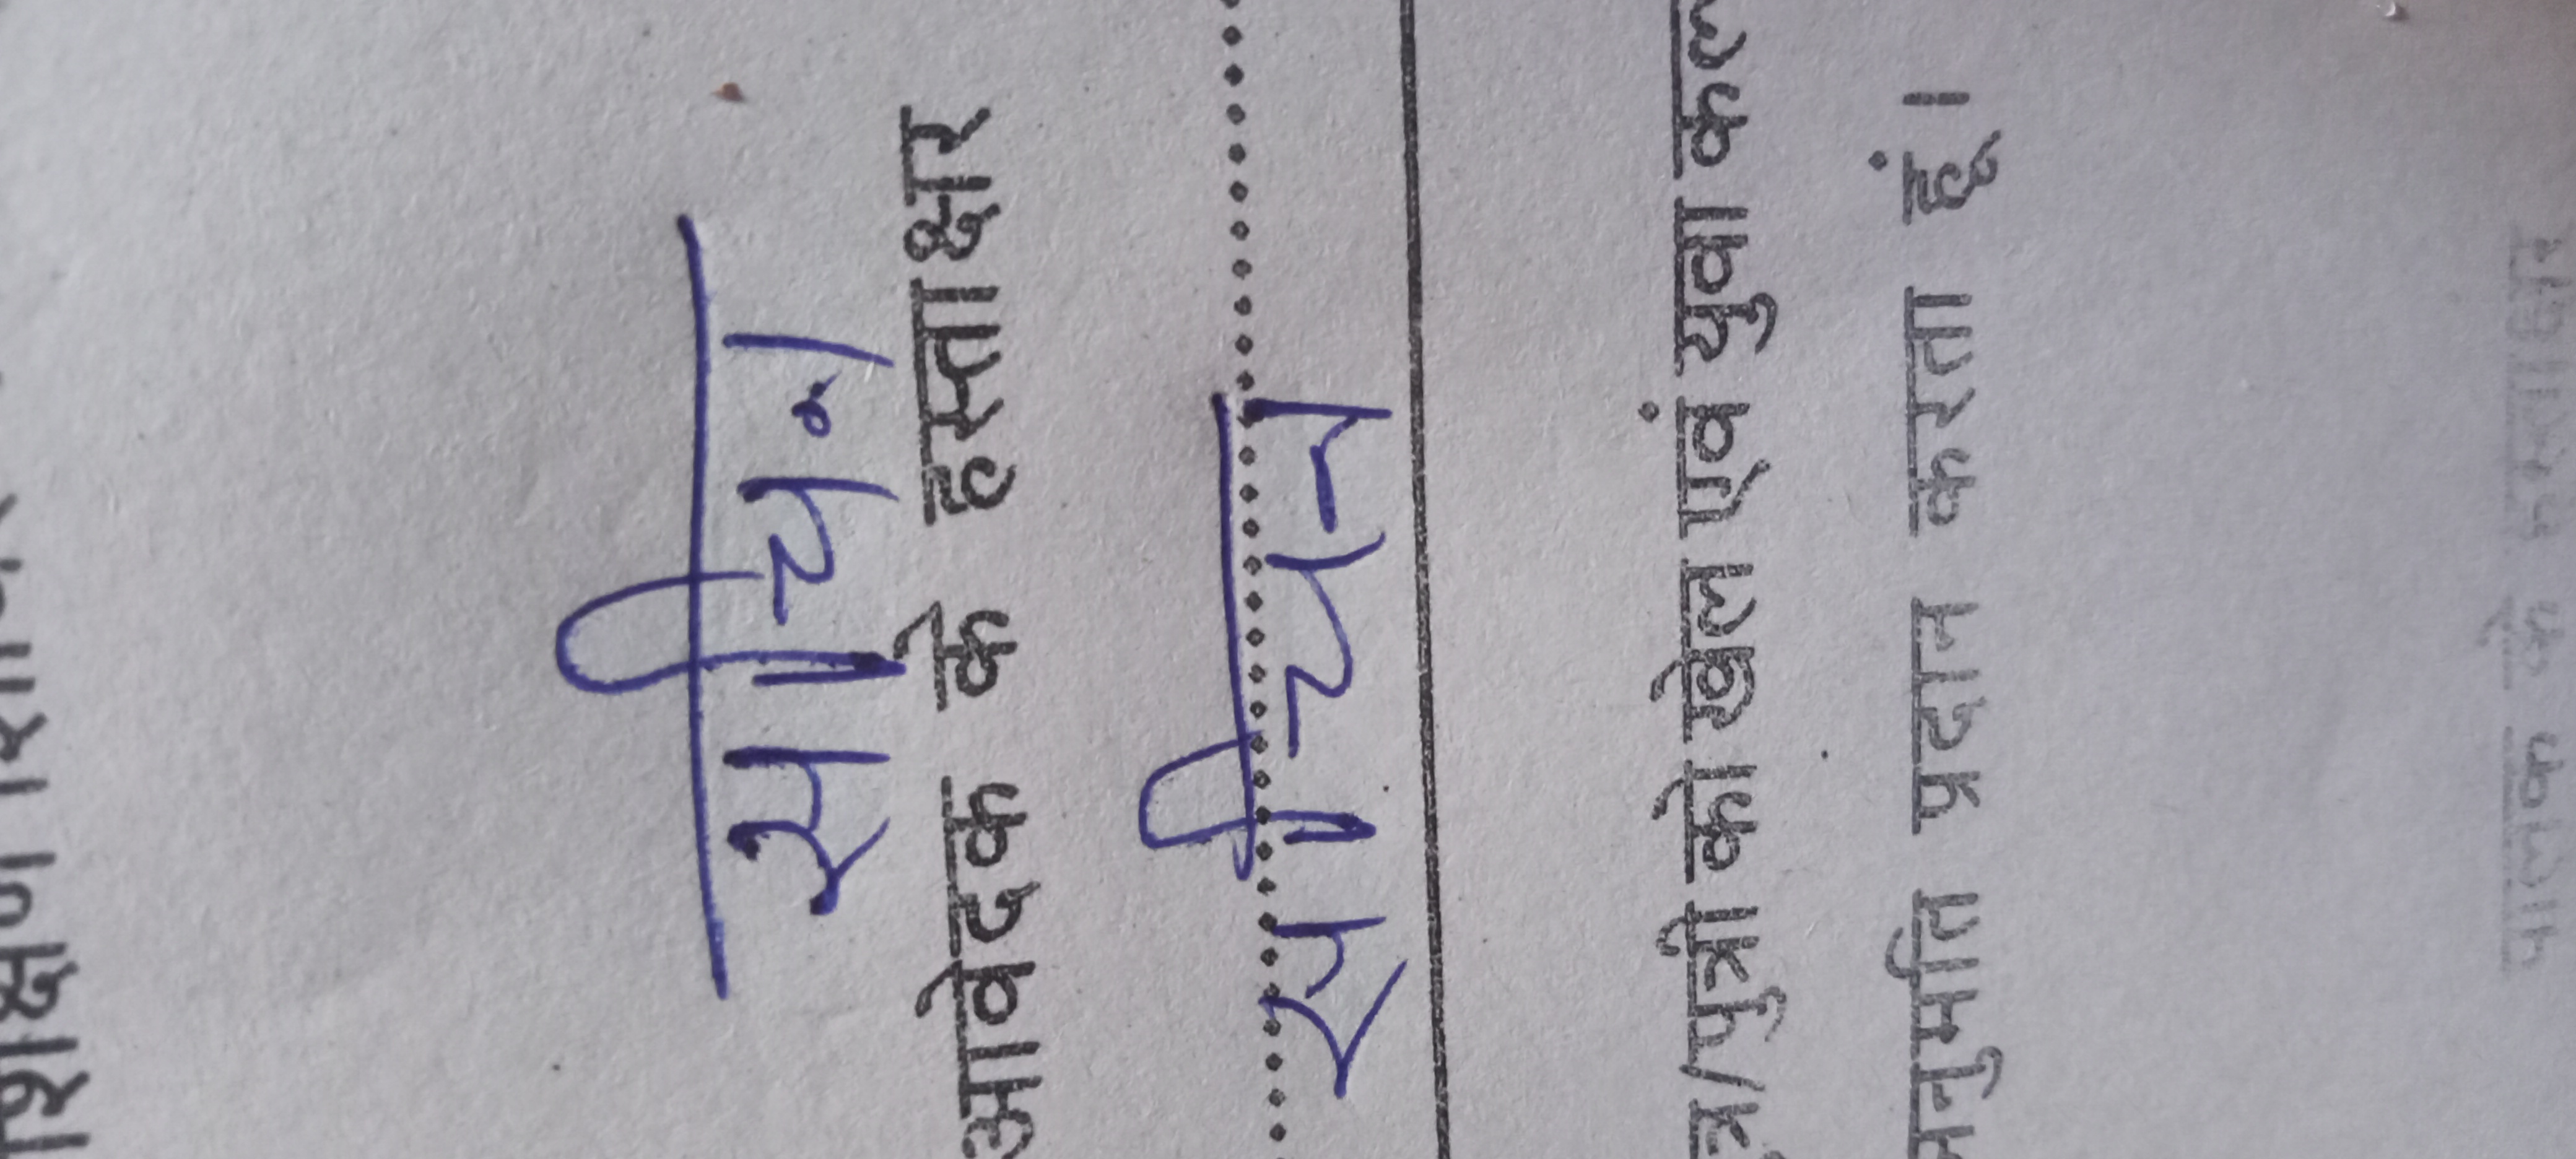 शिक्षण
सचिन
आवेदक के हस्ताक्षार
सचिन
त्र/पुत्री को खेल एवं युवा कल
नुमति प्रदान करता हूं।